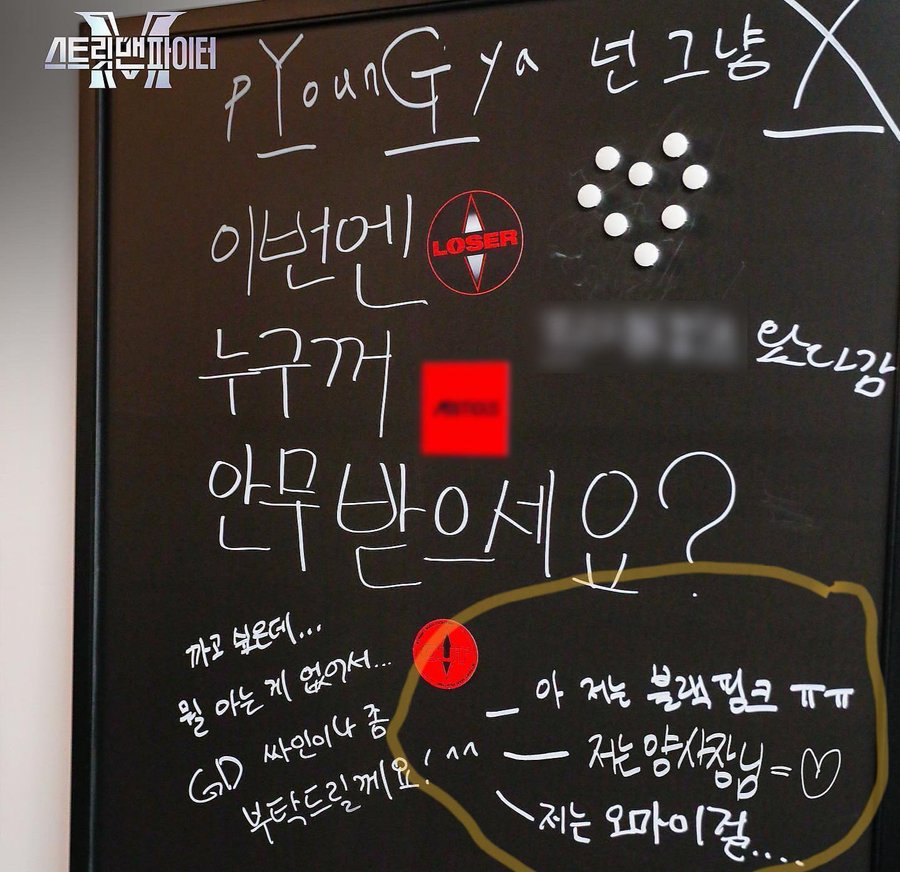 스트릿맨파이터
M
pYounGya 넌 그냥 X
이번엔
LOSER
누구꺼
왔다감
안무 받으세요?
까고 싶은데...
뭘 아는 게 없어서...
GD 싸인이나 좀
부탁드릴께요! ^^
_ 아 저는 블랙핑크 ㅠㅠ
— 저는 양사장님 = ♡
\ 저는 오마이걸....